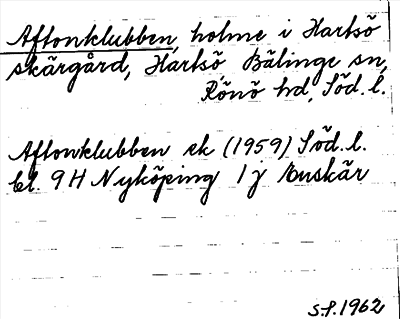 Aftonklubben, holme i Hartsö
skärgård, Hartsö Bälinge sn,
Rönö hd, Söd. l.
Aftonklubben ek (1959) Söd. l.
bl. 9H Nyköping 1j Buskär
S.f. 1962